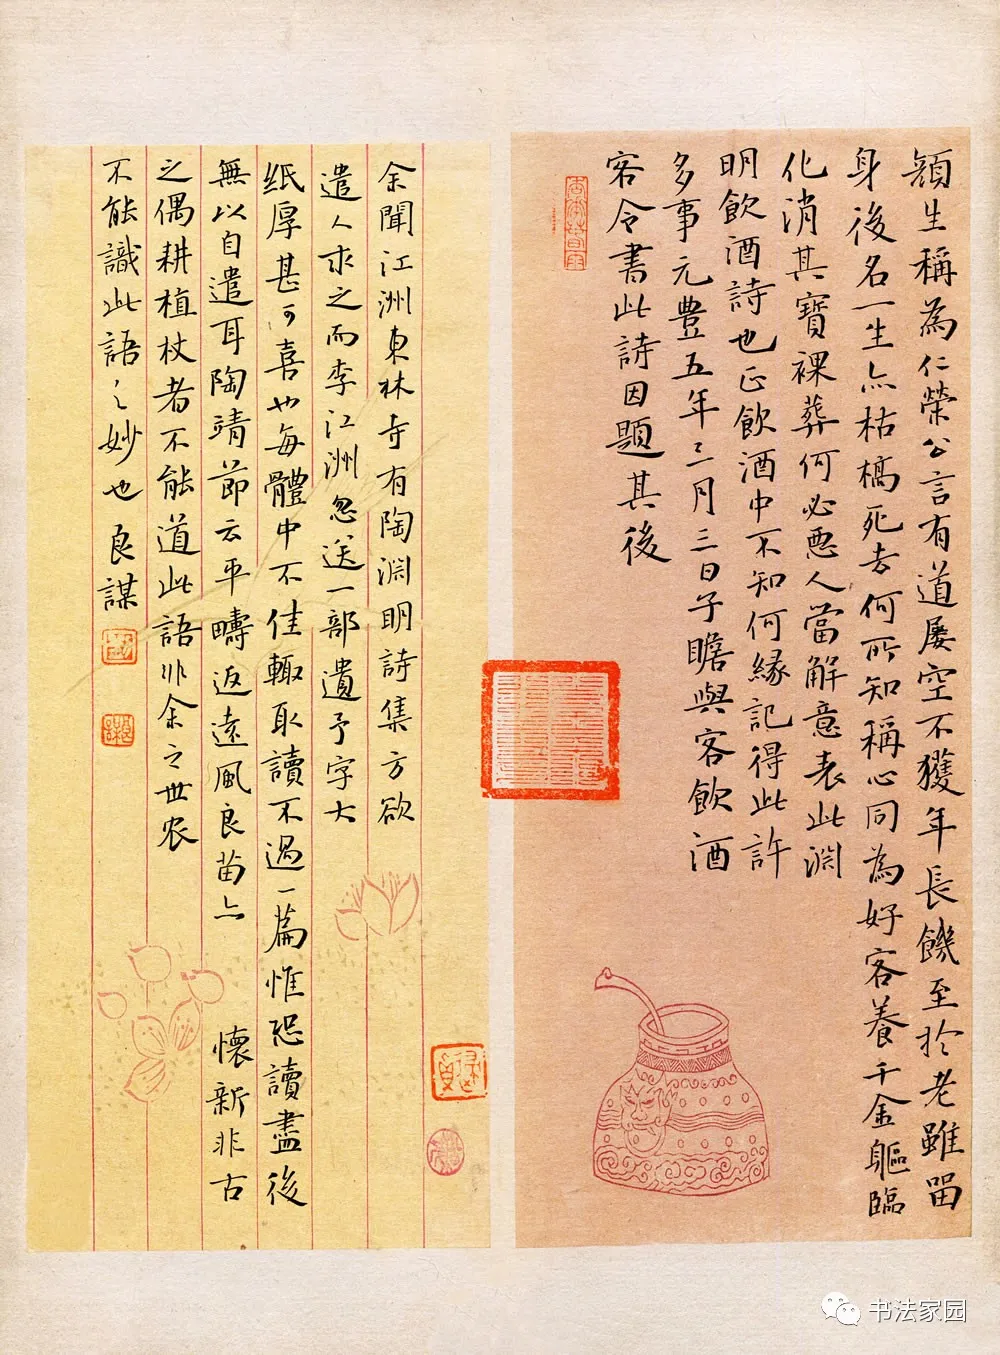 顏生稱為仁榮公言有道屡空不獲年長饑至於老雖留
身後名一生亦枯槁死去何所知稱心同為好客養千金軀臨
化消其寶裸葬何必惡人當解意表此淵
明飲酒詩也正飲酒中不知何緣記得此許
多事元豊五年三月三日子瞻與客飲酒
客令書此詩因題其後
余聞江洲東林寺有陶淵明詩集方欲
遣人求之而李江洲忽送一部遺予字大
纸厚甚可喜也每體中不佳輙取讀不過一篇惟恐讀盡後
無以自遣耳陶靖節云平疇返遠風良苗亦懷新非古
之偶耕植杖者不能道此語非余之世农
不能識此語之妙也良謀
书法家园